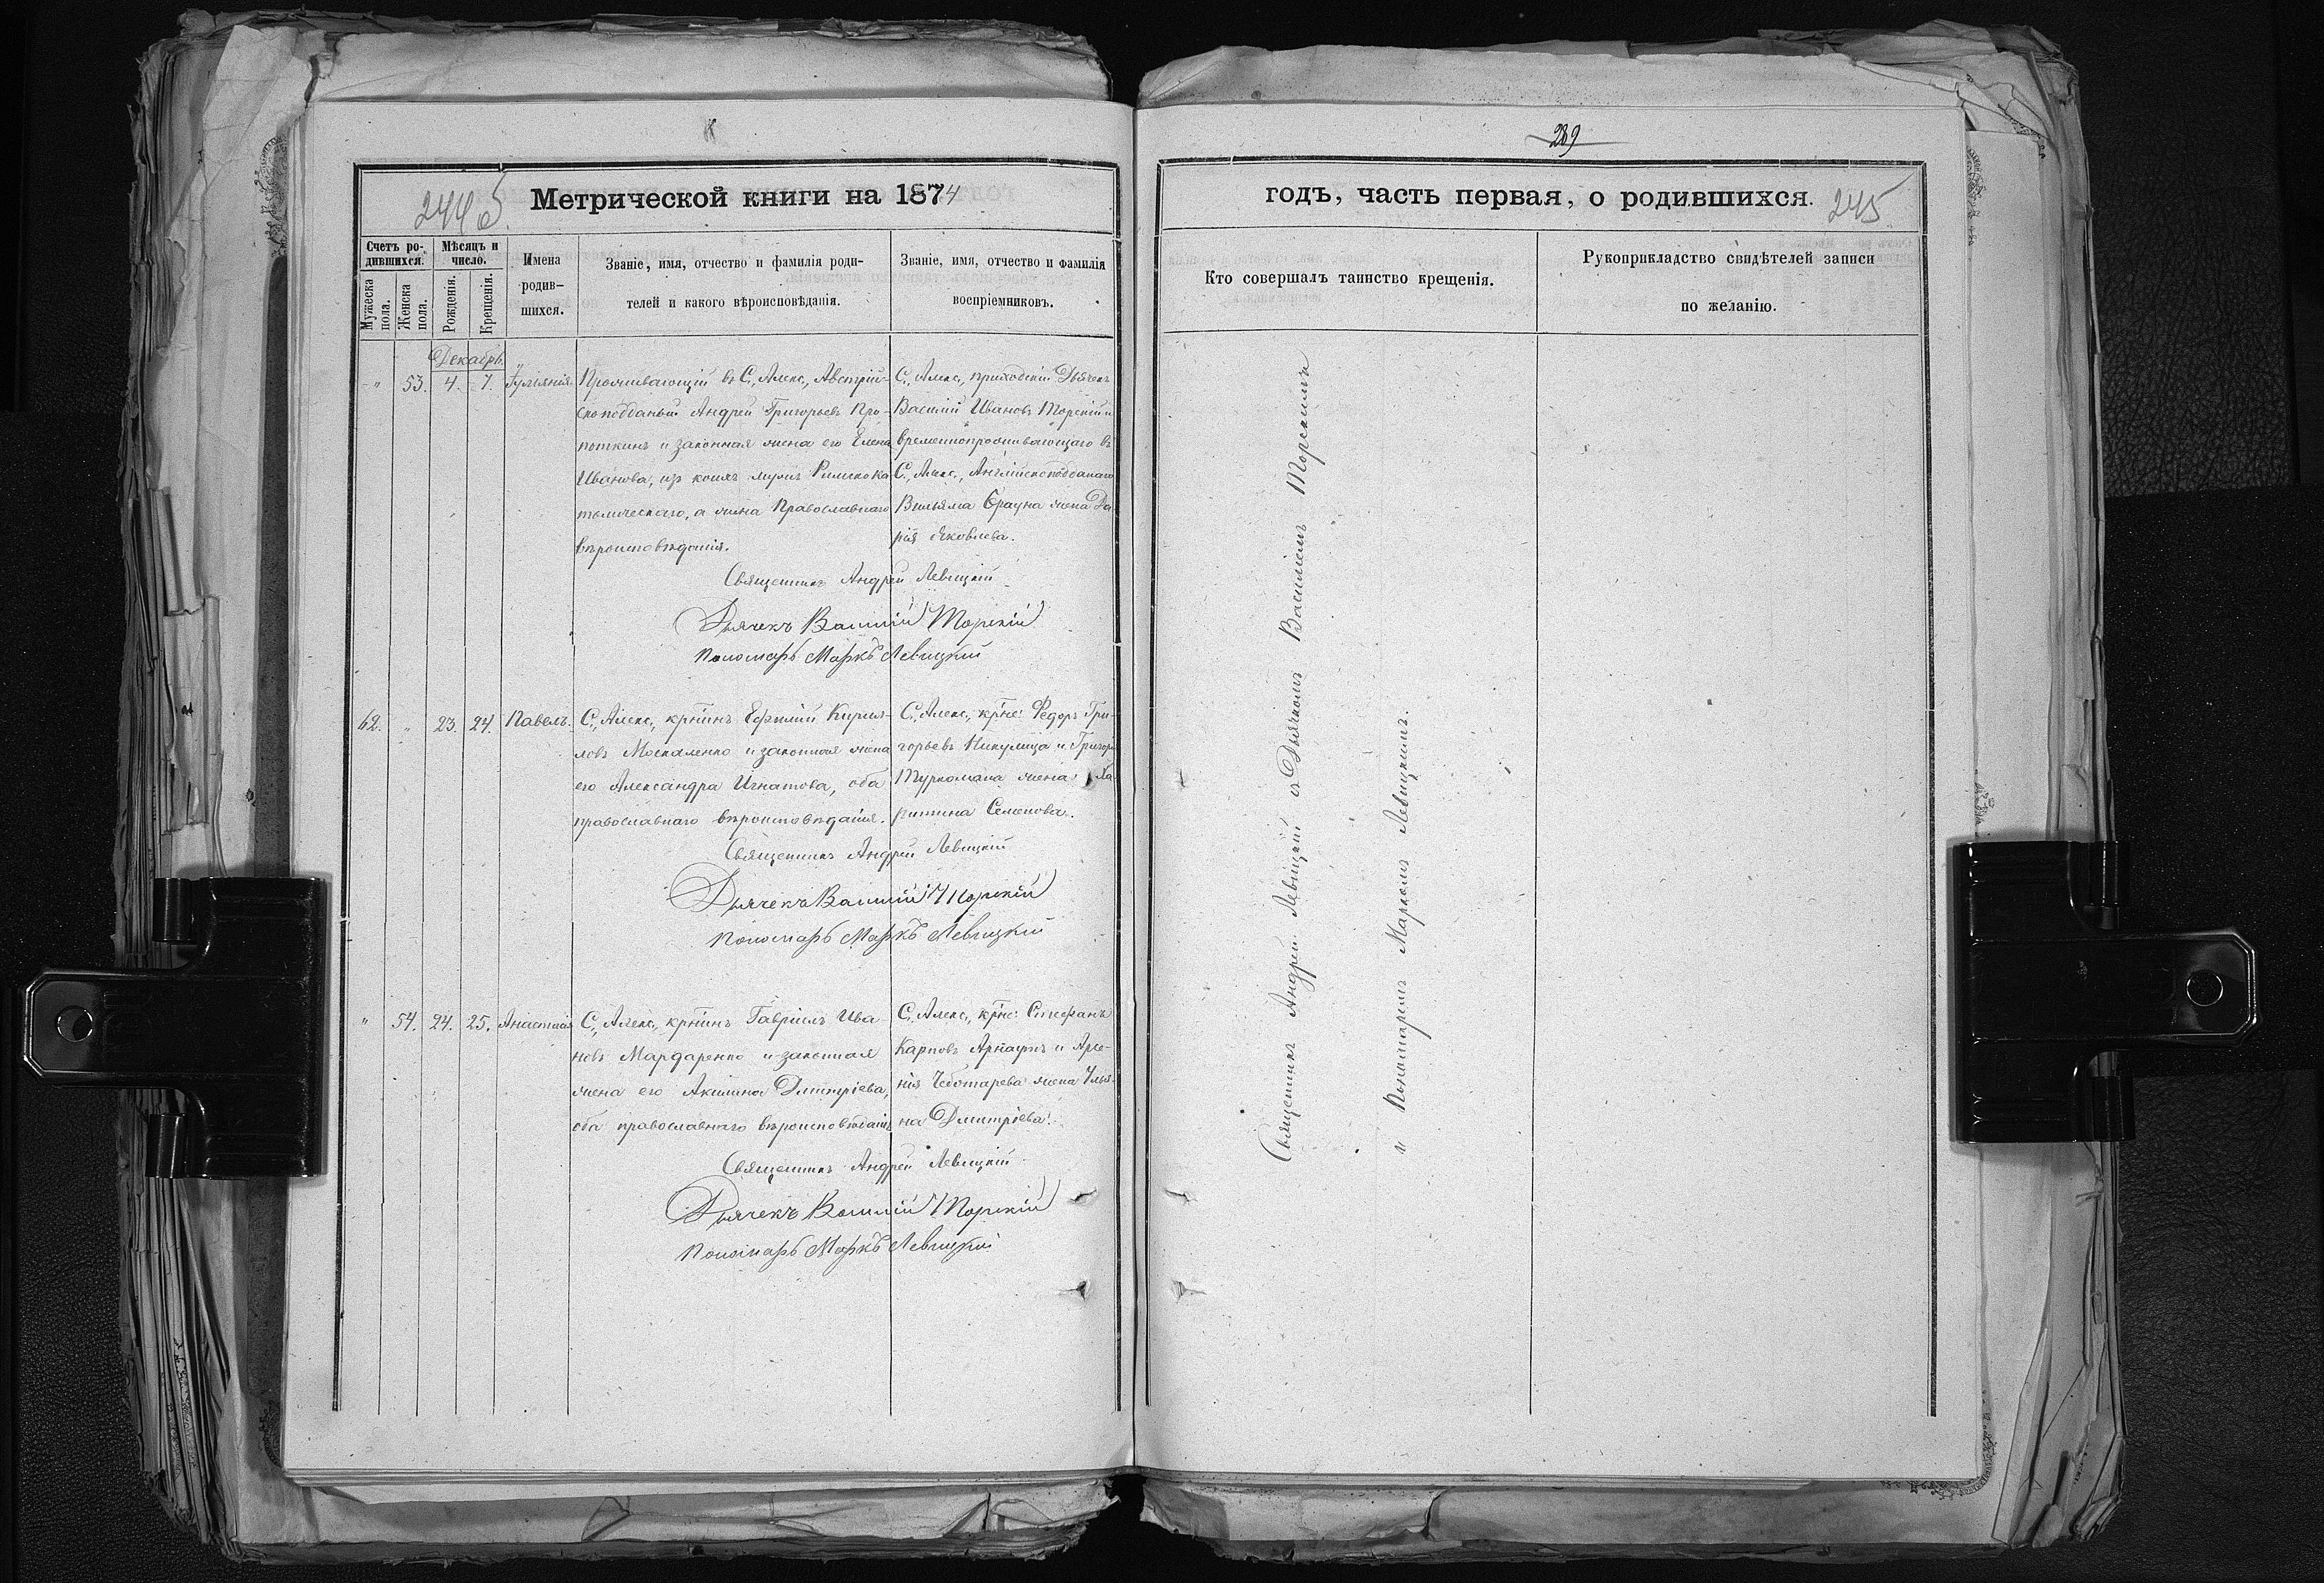 Метрической книги на 1874
Счетъ ро-
дившихся.
Мѣсяцъ и
число.
Мужеска
пола.
Женска
пола.
Рожденія.
Крещенія.
Имена
родив-
шихся.
Званіе, имя, отчество и фамилія роди-
телей и какого вѣроисповѣданія.
Званіе, имя, отчество и фамилія
воспріемниковъ.
Декабрь.
" 53. 4. 7. Іуліанія.
Проживающій въ С. Алекс., Австрій-
скоподданый Андрей Григорьевъ Про-
поткинъ и законная жена его Елена
Иванова, изъ коихъ мужъ Римскока
толическаго, а жена Православнаго
вѣроисповѣданія.
С. Алекс., приходскій Дьячекъ
Василій Ивановъ Торскій и
временнопроживающаго въ
С. Алекс., Англійскоподданаго
Вильяма Брауна жена Да
рія Яковлева.
Священникъ Андрей Левицкій
Дьячекъ Василій Торскій
Пономарь Маркъ Левицкій
62. " 23. 24. Павелъ.
С. Алекс., крнинъ Ефимій Кирил-
ловъ Москаленко и законная жена
его Александра Игнатова, оба
православнаго вѣроисповѣданія.
С. Алекс., крне: Федоръ Гри-
горьевъ Никулица и Григор.
Туркомана жена Ха
ритина Семенова.
Священникъ Андрей Левицкій
Дьячекъ Василій Торскій
Пономарь Маркъ Левицкій
" 54. 24. 25. Анастасія
С. Алекс., крнинъ Гавріилъ Ива
новъ Мардаренко и законная
жена его Акилина Дмитріева,
оба православнаго вѣроисповѣданія
С. Алекс., крне: Стефанъ
Карповъ Арнаутъ и Арсе-
нія Чеботарева жена Улья-
на Дмитріева.
Священникъ Андрей Левицкій
Дьячекъ Василій Торскій
Пономарь Маркъ Левицкій
289
годъ, часть первая, о родившихся.
245
Кто совершалъ таинство крещенія.
Рукоприкладство свидѣтелей записи
по желанію.
Священникъ Андрей Левицкій съ Дьячкомъ Василіемъ Торскимъ
и Пономаремъ Маркомъ Левицкимъ.